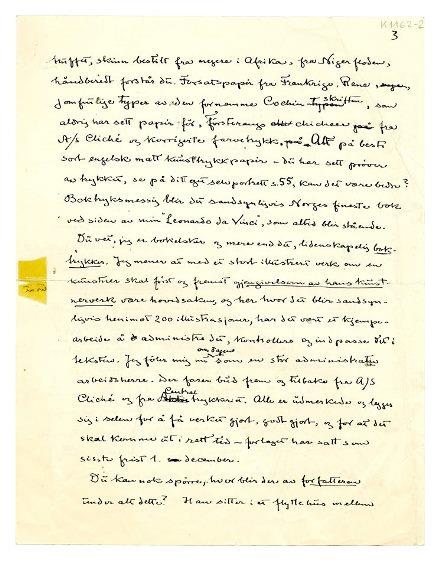 K1162-2
3
truffet, skinn bestilt fra negere i Afrika, fra Nigerfloden,
håndberedt forstår du. Forsatspapir fra Frankrige, Rene,
jomfruelige typer av den fornemme Cochin skriften, som
aldrig har sett papir før, førsterangs clicheer fra
A/S Cliché og korrigerte farvetrykk, Alt på beste
sort engelsk matt kunsttrykkpapir – du har sett prøver
av trykket, se på ditt eget selvportrett s. 55, kan det være bedre?
Boktrykksmessig blir du sandsynligvis Norges fineste bok
ved siden av min "Leonardo da Vinci", som altid blir stående.
Du vet, jeg er bokelsker og mere end det, lidenskapelig bok-
trykker. Jeg mener at med et stort illustrert verk om en
kunstner skal først og fremst gjengivelsen av hans kunst-
nerverk være hovedsaken, og her hvor det blir sandsyn-
ligvis henimot 200 illustrasjoner, har det vært et kjempe-
arbeide å administrere det, kontrollere og indpasse det i
teksten. Jeg føler mig nu som en stor administrativ
arbeidsherre. Der farer bud frem og tilbake fra A/S
Cliché og fra Centraltrykkeriet. Alle er utmerkede og legger
sig i selen for å få verket gjort, godt gjort, og for at det
skal komme ut i rett tid – forlaget har satt som
siste frist 1. december.
Du kan nok spørre, hvor blir der av forfatteren
under alt dette? Han sitter i et flyttehus mellem